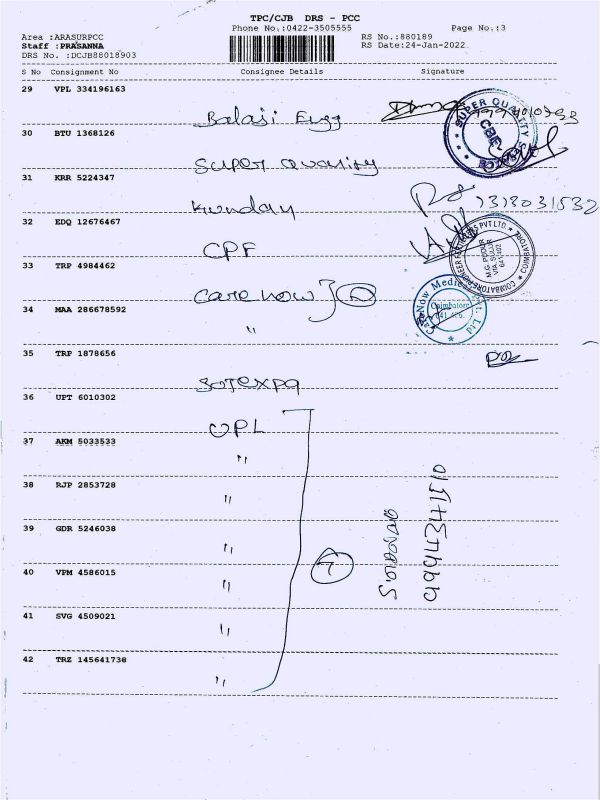 TPC/CJB DRS - PCC
Phone No.:0422-3505555
Page No.:3
Area :ARASURPCC
RS No.:880189
Staff :PRASANNA
RS Date:24-Jan-2022
DRS No. :DCJB88018903
S No Consignment No Consignee Details Signature
29 VPL 334196163
Balaji Engg
30 BTU 1368126
Super Quality
31 KRR 5224347
Kunday
7373031532
32 EDQ 12676467
CPF
33 TRP 4984462
Carenow } 2
34 MAA 286678592
"
35 TRP 1878656
36 UPT 6010302
UPL
37 AKM 5033533
"
38 RJP 2853728
"
39 GDR 5246038
"
7
40 VPM 4586015
"
41 SVG 4509021
"
42 TRZ 145641738
"
SUPER QUALITY
CBE
PVT LTD
COIMBATORE
Care Now Medre
Coimbatore
Ltd